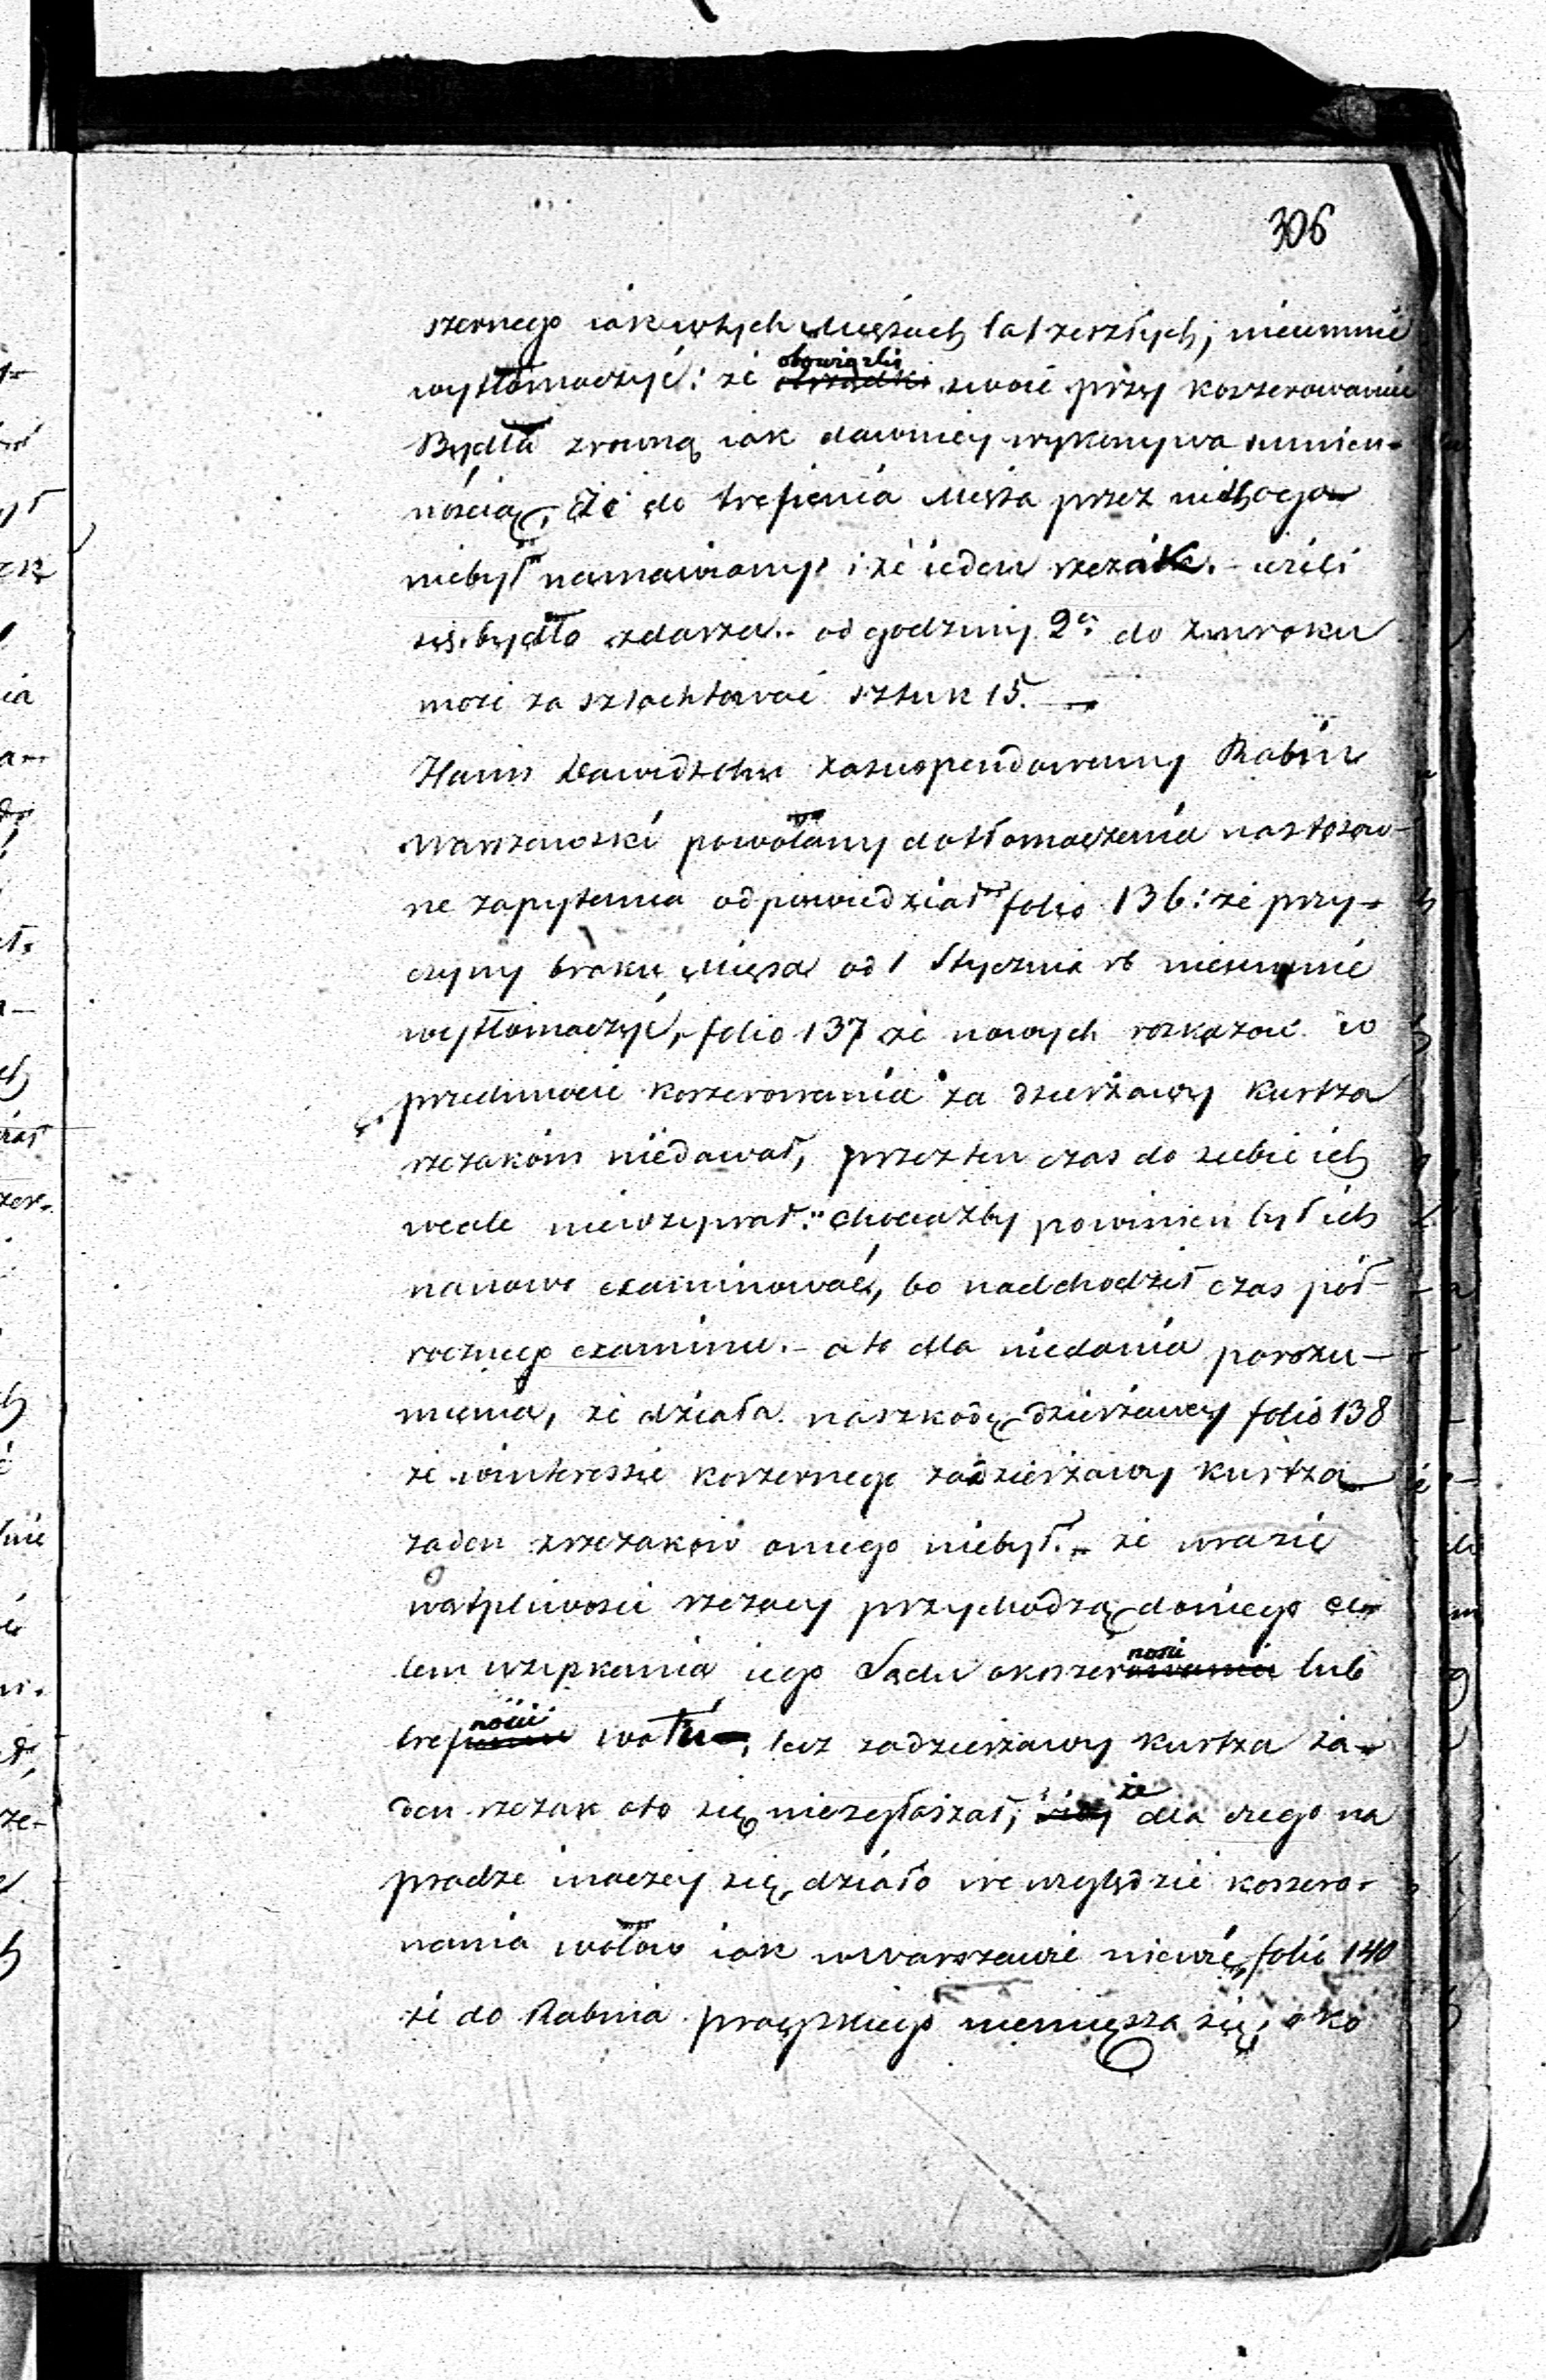 306
szernego iak w tych Miesiącach lat zeszłych; nieumie
wytłomaczyć: że obowiązki swoie przy koszerowaniu
Bydła zrówną iak dawniey wykonywa sumien-
nością, Że do trefienia Mięsa przez nikogo
niebył namawiany, i że ieden rzezak. ieżeli
się bydło zdarza.. od godziny 2ej do zmroku
może za szlachtować sztuk 15. —
Haim Dawidsohn zasuspendowany Rabin
Warszawski powołany do tłomaczenia na stosow-
ne zapytania odpowiedział folio 136: że przy-
czyny braku Mięsa od 1 Stycznia rb nieumie
wytłomaczyć, folio 137 że nowych rozkazów w
przedmiocie koszerowania za dzierżawy Kurtza
rzezakom niedawał, przez ten czas do siebie ich
wcale niewzywał: chociażby powinien był ich
nanowo examinować, bo nadchodził czas pół-
rocznego examinu. - a to dla niedania porozu-
mienia, że działa na szkodę dzierżawy folio 138
że w interessie koszernego za dzierżawy Kurtza
żaden z rzezaków u niego niebył. - że w razie
wątpliwości rzezacy przychodzą do niego ce-
lem uzyskania iego Sądu o koszerności lub
trefności wołu, lecz za dzierżawy Kurtza ża-
den rzezak oto się niezgłaszał; że dla czego na
pradze inaczey się działo we względzie koszero-
wania wołów iak w Warszawie niewie, folio 140
że do Rabina pragskiego niemięsza się, o ko